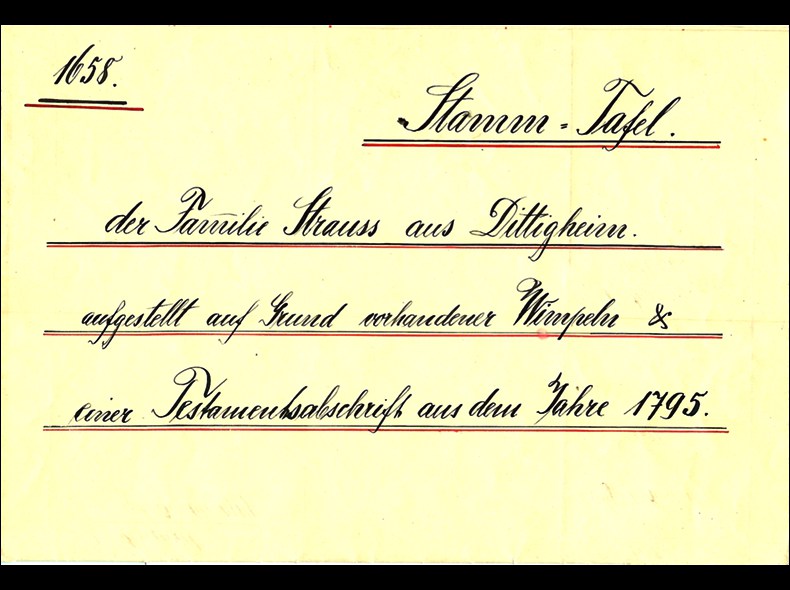 1658.
Stamm-Tafel.
der Familie Strauss aus Dittigheim.
aufgestellt auf Grund vorhandener Wimpeln &
einer Testamentsabschrift aus dem Jahre 1795.